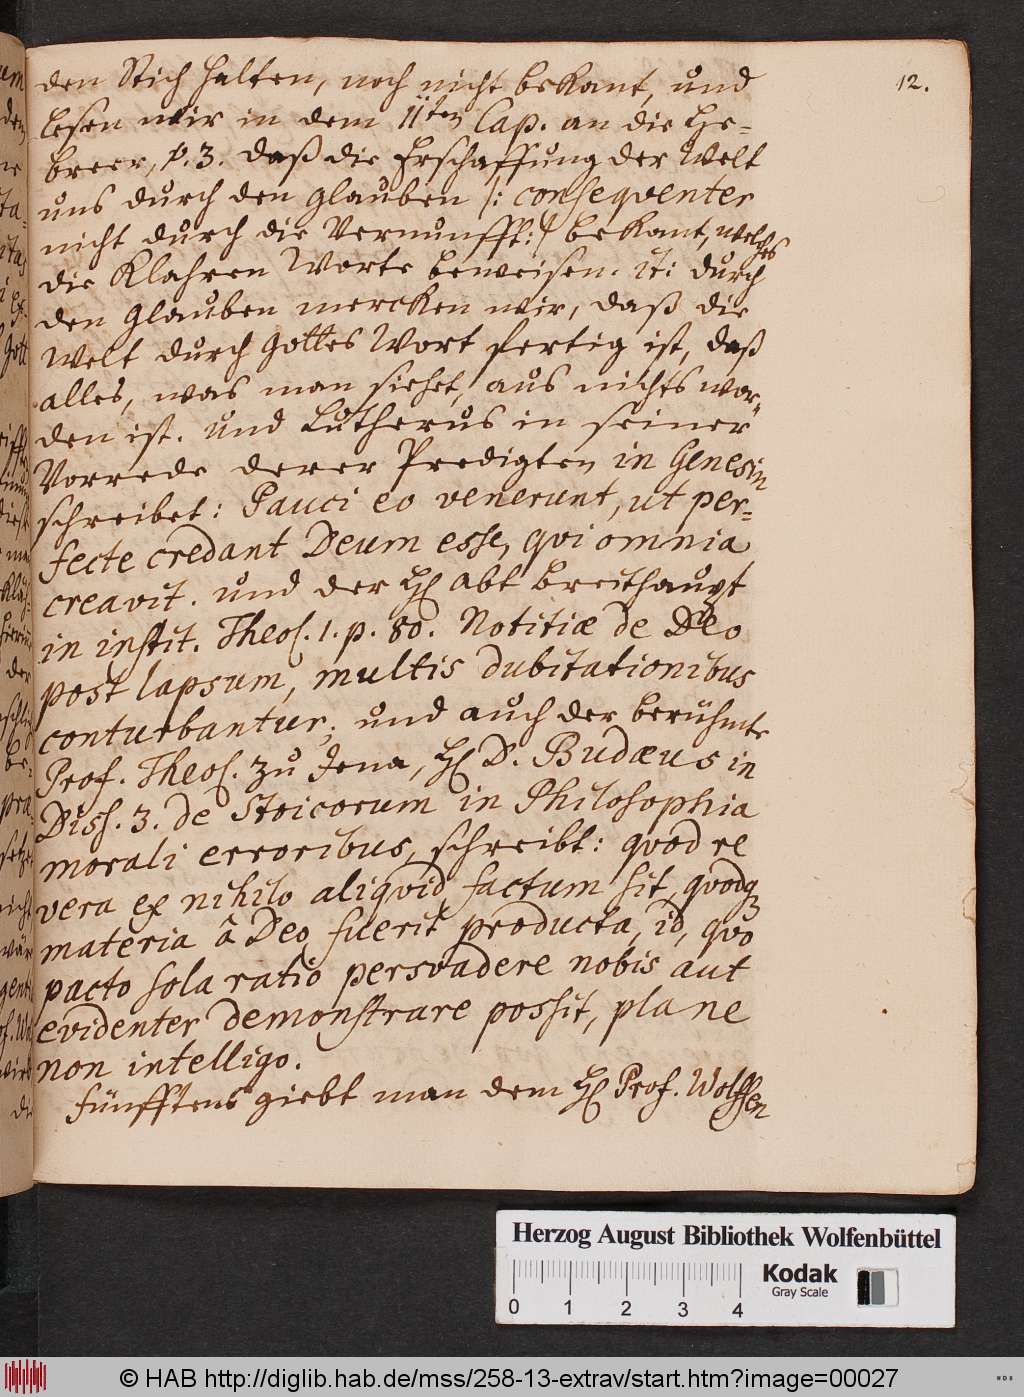 12.
den Stich halten, noch nicht bekant, und
lesen wir in dem 11ten Cap. an die He-
breer, p. 3. daß die Erschaffung der Welt
uns durch den glauben /: conseqventer
nicht durch die Vernunfft :/ bekant, welches
die Klahren Worte beweisen. it: durch
den Glauben mercken wir, daß die
Welt durch Gottes Wort fertig ist, daß
alles, was man siehet, aus nichts wor-
den ist. und Lutherus in seiner
Vorrede derer Predigten in Genesin
schreibet: Pauci eo venerunt, ut per-
fecte credant Deum esse, qvi omnia
creavit. und der H. abt Breithaupt
in instit. Theol. 1. p. 80. Notitiæ de Deo
post lapsum, multis dubitationibus
conturbantur; und auch der berühmte
Prof. Theol. zu Jena, H. D. Budæus in
Diss. 3. de Stoicorum in Philosophia
morali erroribus, schreibt: qvod re
vera ex nihilo aliqvid factum sit, qvodq;
materia â Deo fuerit producta, id, qvo
pacto sola ratio persvadere nobis aut
evidenter demonstrare possit, plane
non intelligo.
Fünfftens giebt man dem H. Prof. Wolffen
Herzog August Bibliothek Wolfenbüttel
0 1 2 3 4
Kodak
Gray Scale
© HAB http://diglib.hab.de/mss/258-13-extrav/start.htm?image=00027